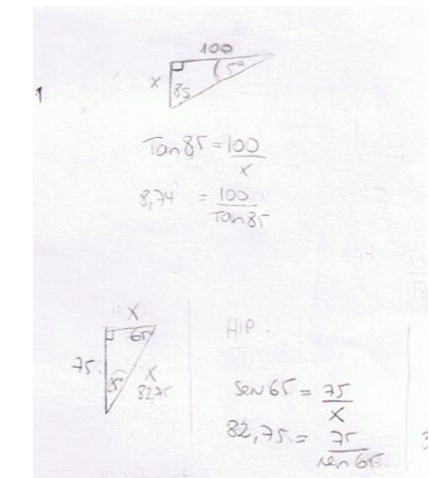 1
100
x
5°
85
Tan 85 = 100
x
8,74 = 100
Tan 85
X
65
75
X
82,75
HIP.
sen 65 = 75
x
82,75 = 75
sen 65
3